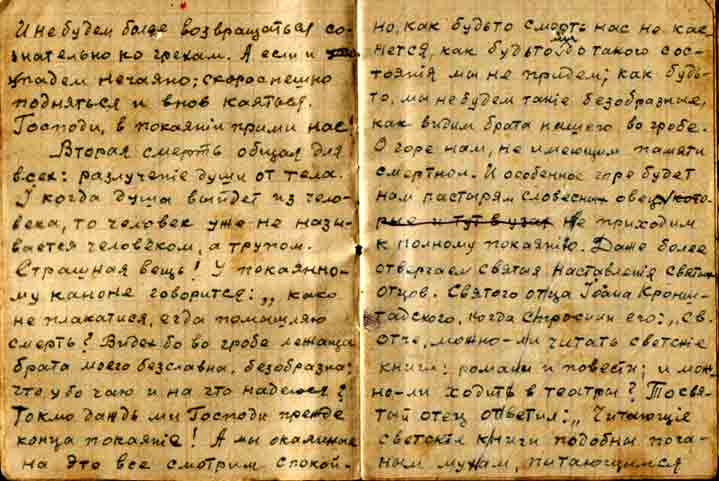 И не будем более возвращаться со-
знательно ко грехам. А если и
упадем нечаяно; скороспешно
подняться и внов каяться.
Господи, в покаянiи прими нас!
Вторая смерть общая для
всех: разлученiе души от тела.
I когда душа выйдет из чело-
века, то человек уже не назы-
вается человеком, а трупом.
Страшная вещь! У покаянно-
му каноне говорится: „како
не плакатися, егда помышляю
смерть? Видех бо во гробе лежаща
брата моего безславна, безобразна:
что убо чаю и на что надеюся?
Токмо даждь ми Господи прежде
конца покаянiе! А мы окаянные
на это все смотрим спокой-
но, как будьто смерть нас не кас-
нется, как будьто мы до такого сос-
тоянiя мы не придем; как будь-
то, мы не будем такiе безобразные,
как видим брата нашего во гробе.
О горе нам, не имеющим памяти
смертной. И особенное горе будет
нам пастырям словесных овец, кото-
рые и тут в не приходим
к полному покаянiю. Даже более
отвергаем святыя наставленiя святых
отцов. Святого отца Iоана Кронш-
тадского, когда спросили его: „св.
отче, можно-ли читать светскiе
книги: романы и повести; и мож-
но-ли ходить в театры? То свя-
тый отец ответил: „Читающiе
светскiя книги подобны пога-
ным мухам, питающимся